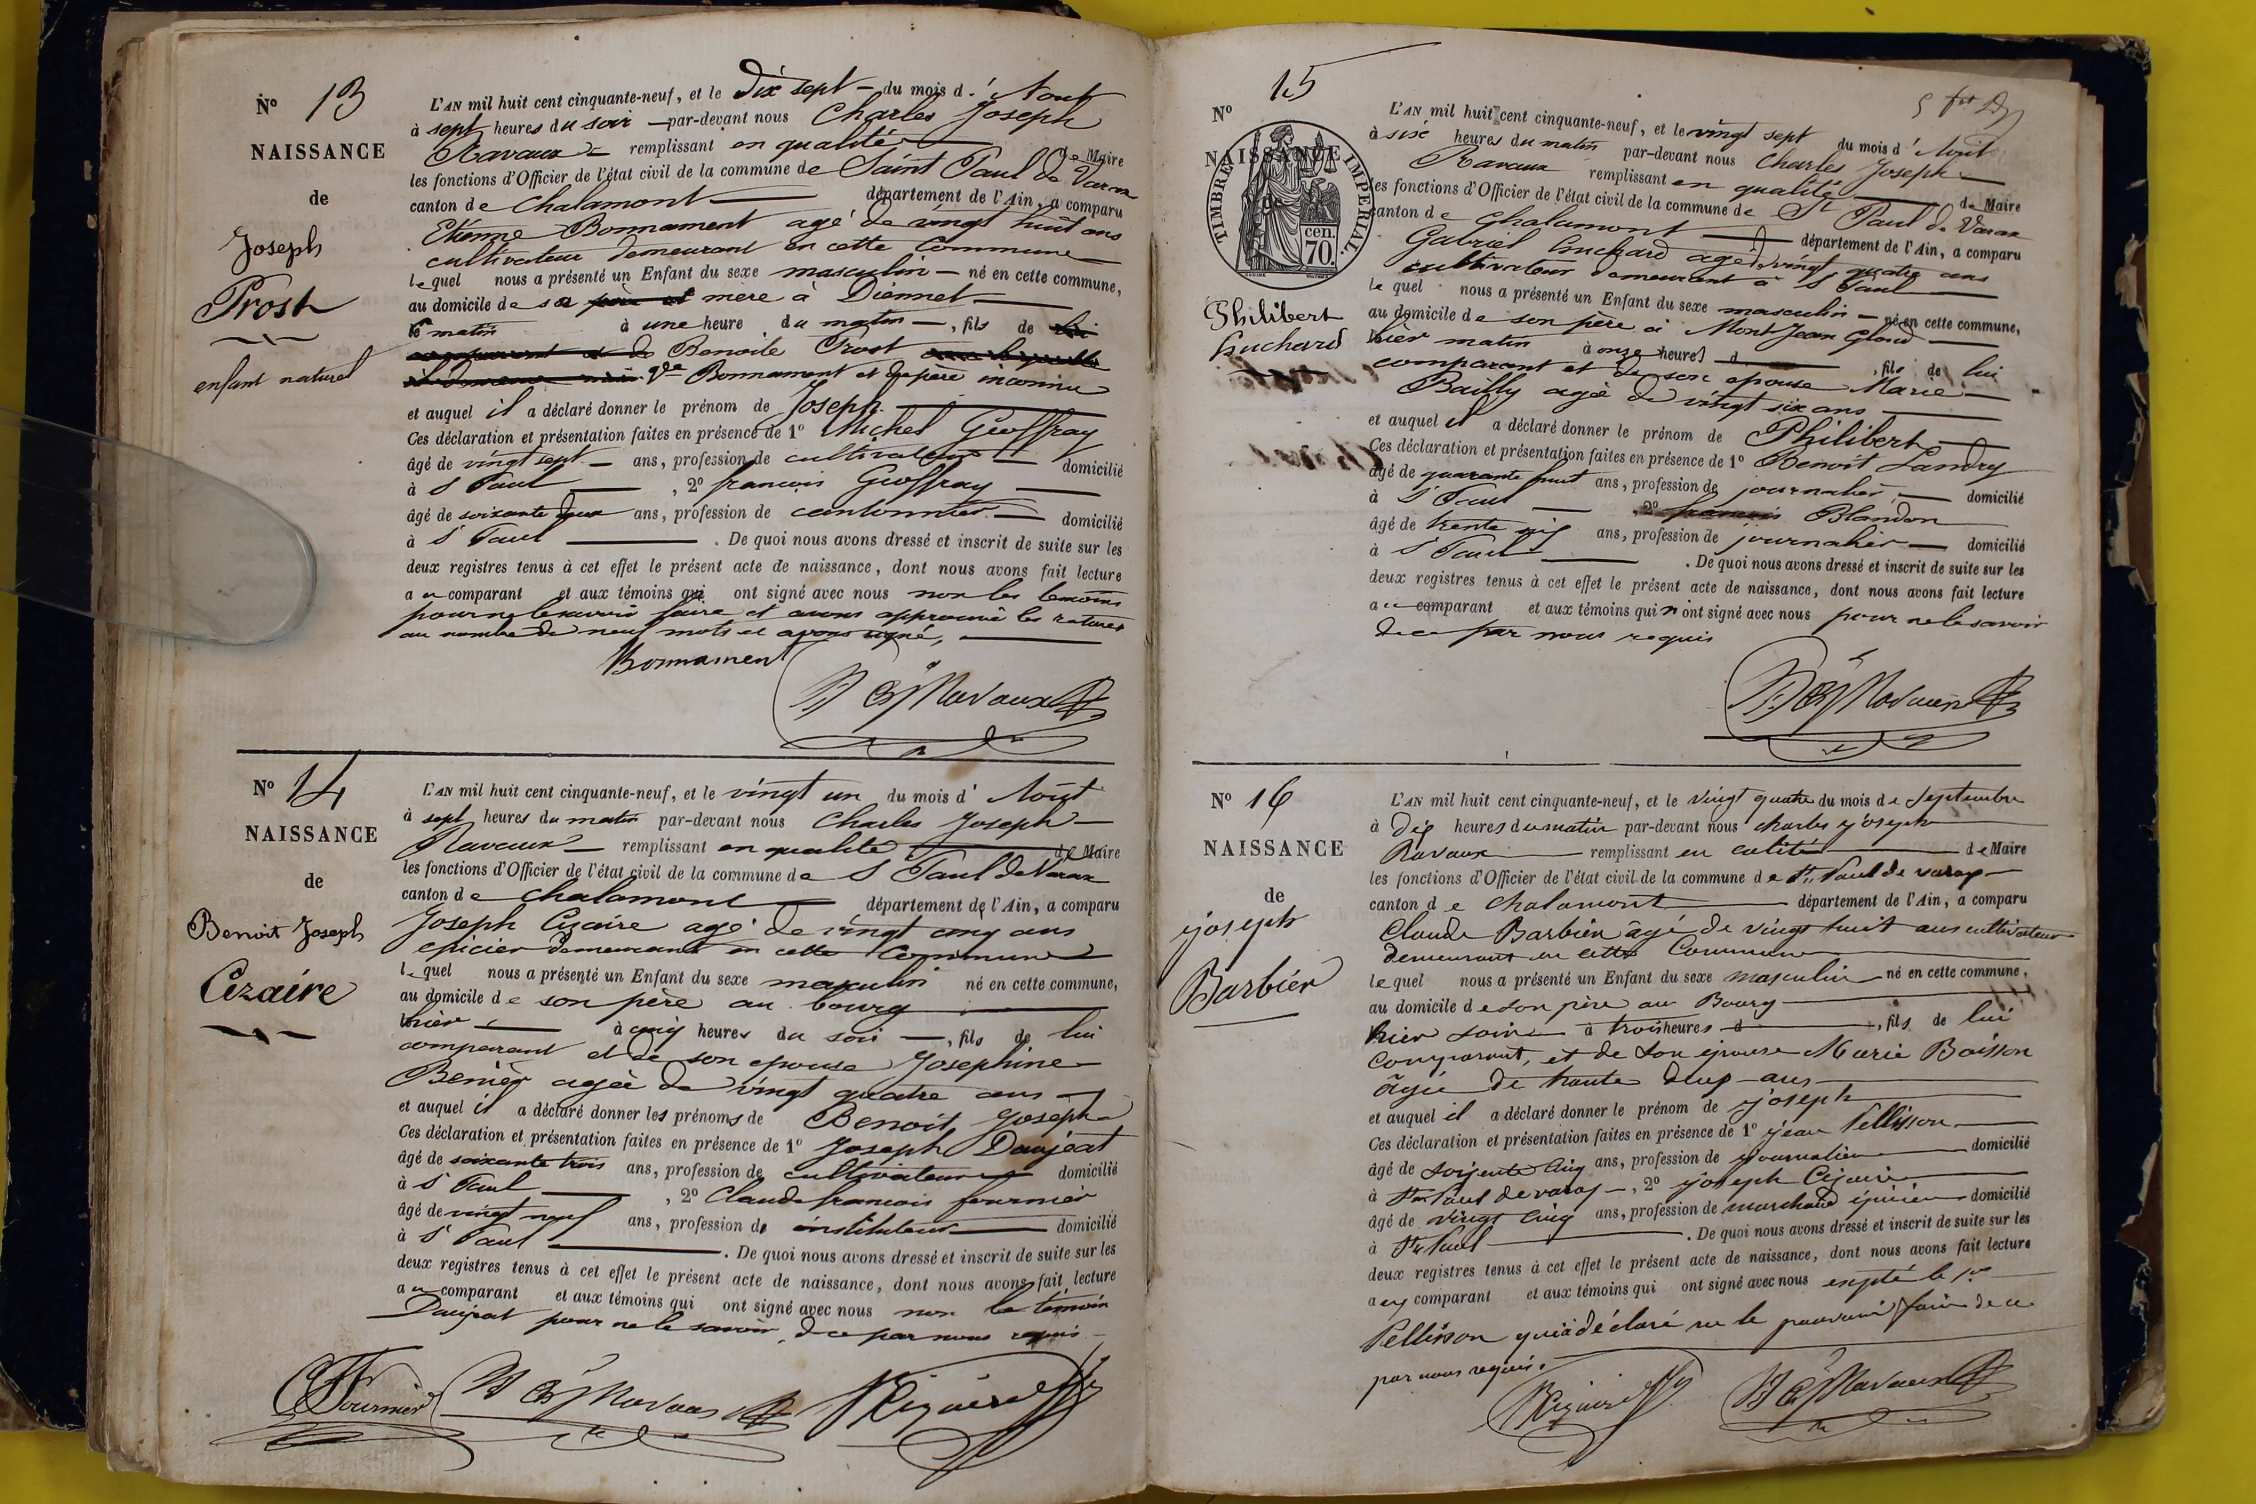 N° 13
NAISSANCE
de
Joseph
Prost
enfant naturel
L'AN mil huit cent cinquante-neuf, et le dix sept du mois d' Aout
à sept heures du soir par-devant nous Charles Joseph
Ravaux remplissant en qualité de Maire
les fonctions d'Officier de l'état civil de la commune de Saint Paul de Varax
canton de Chalamont département de l'Ain, a comparu
Etienne Bonnament agé de vingt huit ans
cultivateur demeurant en cette Commune
lequel nous a présenté un Enfant du sexe masculin né en cette commune,
au domicile de sa père et mère à Diennet
le matin à une heure du matin, fils de lui
de Benoite Prost
Vve Bonnament et de père inconnu
et auquel il a déclaré donner le prénom de Joseph
Ces déclaration et présentation faites en présence de 1° Michel Geoffray
âgé de vingt sept ans, profession de cultivateur domicilié
à St Paul, 2° francois Geoffray
âgé de soixante deux ans, profession de cantonnier domicilié
à St Paul. De quoi nous avons dressé et inscrit de suite sur les
deux registres tenus à cet effet le présent acte de naissance, dont nous avons fait lecture
au comparant et aux témoins qui ont signé avec nous non les temoins
pour ne le savoir faire et avons approuvé les ratures
au nombre de neuf mots et avons signé,
Bonnament
Ravaux
N° 14
NAISSANCE
de
Benoit Joseph
Cizaire
L'AN mil huit cent cinquante-neuf, et le vingt un du mois d' Août
à sept heures du matin par-devant nous Charles Joseph
Ravaux remplissant en qualité de Maire
les fonctions d'Officier de l'état civil de la commune de St Paul de Varax
canton de Chalamont département de l'Ain, a comparu
Joseph Cizaire agé de vingt cinq ans
epicier demeurant en cette Commune
lequel nous a présenté un Enfant du sexe masculin né en cette commune,
au domicile de son père au bourg
hier à cinq heures du soir, fils de lui
comparant et de son epouse Josephine
Benier agée de vingt quatre ans
et auquel il a déclaré donner les prénoms de Benoit Joseph
Ces déclaration et présentation faites en présence de 1° Joseph Daujat
âgé de soixante trois ans, profession de cultivateur domicilié
à St Paul, 2° Claude francois fournier
âgé de vingt neuf ans, profession de instituteur domicilié
à St Paul. De quoi nous avons dressé et inscrit de suite sur les
deux registres tenus à cet effet le présent acte de naissance, dont nous avons fait lecture
au comparant et aux témoins qui ont signé avec nous non le témoin
Daujat pour ne le savoir de ce par nous requis
Fournier Ravaux Cizaire
N° 15
NAISSANCE
de
TIMBRE IMPERIAL
70 cen.
Philibert
Guchard
L'AN mil huit cent cinquante-neuf, et le vingt sept du mois d' Août
à six heures du matin par-devant nous Charles Joseph
Ravaux remplissant en qualité de Maire
les fonctions d'Officier de l'état civil de la commune de St Paul de Varax
canton de Chalamont département de l'Ain, a comparu
Gabriel Guchard agé de vingt quatre ans
cultivateur demeurant à St Paul
lequel nous a présenté un Enfant du sexe masculin né en cette commune,
au domicile de son père à Mont Jean Gloud
hier matin à onze heures d, fils de lui
comparant et de son epouse Marie
Bailly agée de vingt six ans
et auquel il a déclaré donner le prénom de Philibert
Ces déclaration et présentation faites en présence de 1° Benoit Landry
âgé de quarante huit ans, profession de journalier domicilié
à St Paul, 2° francois Blandon
âgé de trente six ans, profession de journalier domicilié
à St Paul. De quoi nous avons dressé et inscrit de suite sur les
deux registres tenus à cet effet le présent acte de naissance, dont nous avons fait lecture
au comparant et aux témoins qui n'ont signé avec nous pour ne le savoir
de ce par nous requis
Ravaux
N° 16
NAISSANCE
de
joseph
Barbier
L'AN mil huit cent cinquante-neuf, et le vingt quatre du mois de Septembre
à dix heures du matin par-devant nous charles joseph
Ravaux remplissant en calité de Maire
les fonctions d'Officier de l'état civil de la commune de St Paul de varax
canton de Chalamont département de l'Ain, a comparu
Claude Barbier âgé de vingt huit ans cultivateur
demeurant en cette Commune
lequel nous a présenté un Enfant du sexe masculin né en cette commune,
au domicile de son père au Bourg
hier soir à trois heures d, fils de lui
comparant, et de son épouse Marie Boisson
âgée de trente deux ans
et auquel il a déclaré donner le prénom de joseph
Ces déclaration et présentation faites en présence de 1° jean Pellisson
âgé de soixante cinq ans, profession de journalier domicilié
à St Paul de varax, 2° joseph Cizaire
âgé de vingt cinq ans, profession de marchand épicier domicilié
à St Paul. De quoi nous avons dressé et inscrit de suite sur les
deux registres tenus à cet effet le présent acte de naissance, dont nous avons fait lecture
aux comparant et aux témoins qui ont signé avec nous expté le 1er
Pellisson qui a déclaré ne le pouvoir faire de ce
par nous requis.
Cizaire Ravaux